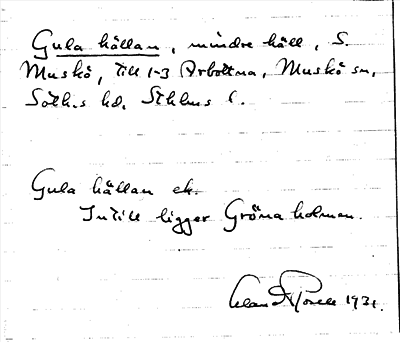 Gula hällan, mindre häll, S.
Muskö, till 1-3 Arbottna, Muskö sn,
Söth.s hd. Sthlms l.
Gula hällan ek.
Intill ligger Gröna holmen.
1931.